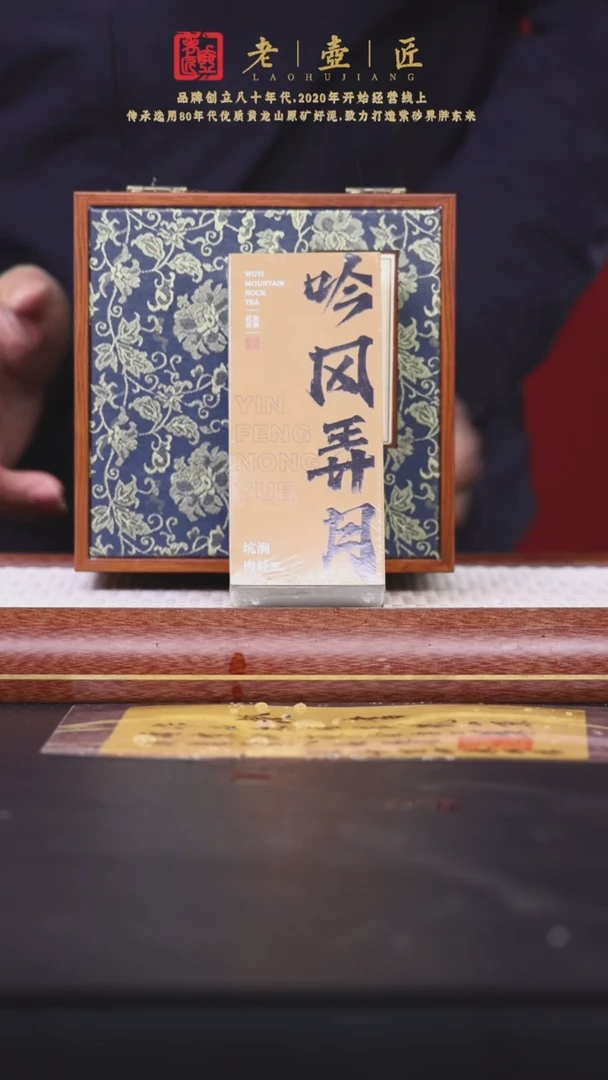 老 | 壶 | 匠
LAOHUJIANG
品牌创立八十年代,2020年开始经营线上
传承选用80年代优质黄龙山原矿好泥,致力打造紫砂界胖东来
WUYI
MOUNTAIN
ROCK
TEA
吟风弄月
YIN
FENG
NONG
YUE
坑涧
肉桂